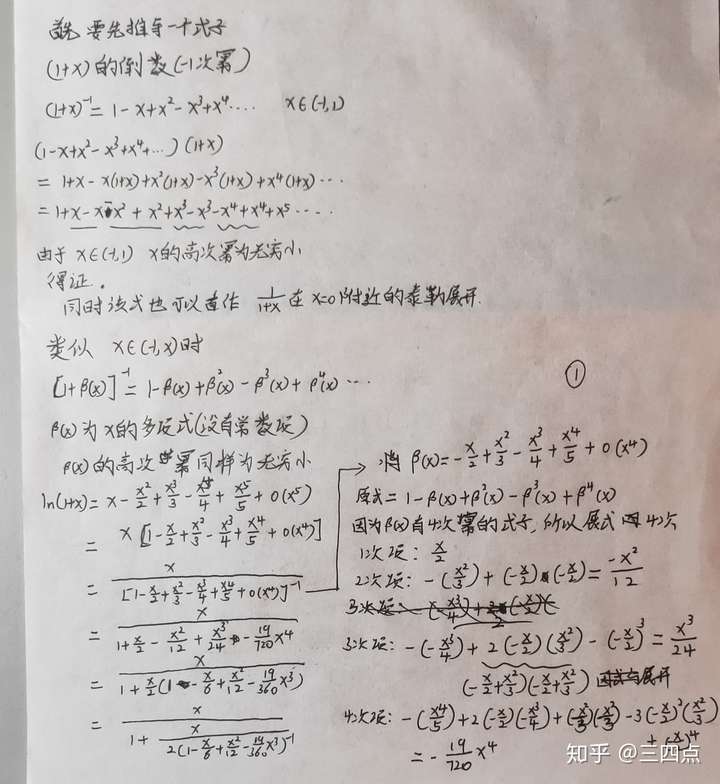 首先要先推导一个式子
(1+x)的倒数(-1次幂)
(1+x)^{-1} = 1-x+x^2-x^3+x^4.... x∈(-1,1)
(1-x+x^2-x^3+x^4+...)(1+x)
= 1+x-x(1+x)+x^2(1+x)-x^3(1+x)+x^4(1+x)...
= 1+x-x-x^2+x^2+x^3-x^3-x^4+x^4+x^5....
由于 x∈(-1,1) x的高次幂为无穷小
得证.
同时该式也可以直作 1/(1+x) 在 x=0附近的泰勒展开.
类似 x∈(-1,x)时
[1+β(x)]^{-1} = 1-β(x)+β^2(x)-β^3(x)+β^4(x)...
①
β(x)为x的多项式(没有常数项)
β(x)的高次幂同样为无穷小
ln(1+x) = x-x^2/2+x^3/3-x^4/4+x^5/5+o(x^5)
= x[1-x/2+x^2/3-x^3/4+x^4/5+o(x^4)]
= x/[1-x/2+x^2/3-x^3/4+x^4/5+o(x^4)]^{-1}
= x/(1+x/2-x^2/12+x^3/24-19/720 x^4)
= x/(1+x/2(1-x/6+x^2/12-19/360 x^3))
= x/(1+x/(2(1-x/6+x^2/12-19/360 x^3)^{-1}))
将 β(x)=-x/2+x^2/3-x^3/4+x^4/5+o(x^4)
原式=1-β(x)+β^2(x)-β^3(x)+β^4(x)
因为β(x)有4次幂的式子,所以展式4次
1次项: x/2
2次项: -(x^2/3)+(-x/2)(-x/2)=-x^2/12
3次项: -(-x^3/4)+2(-x/2)(x^2/3)-(-x/2)^3=x^3/24
(-x/2+x^2/3)(-x/2+x^2/3) 展开
4次项: -(x^4/5)+2(-x/2)(-x^3/4)+(x^2/3)(x^2/3)-3(-x/2)^2(x^2/3)
+(-x/2)^4
= -19/720 x^4
知乎 @三四点